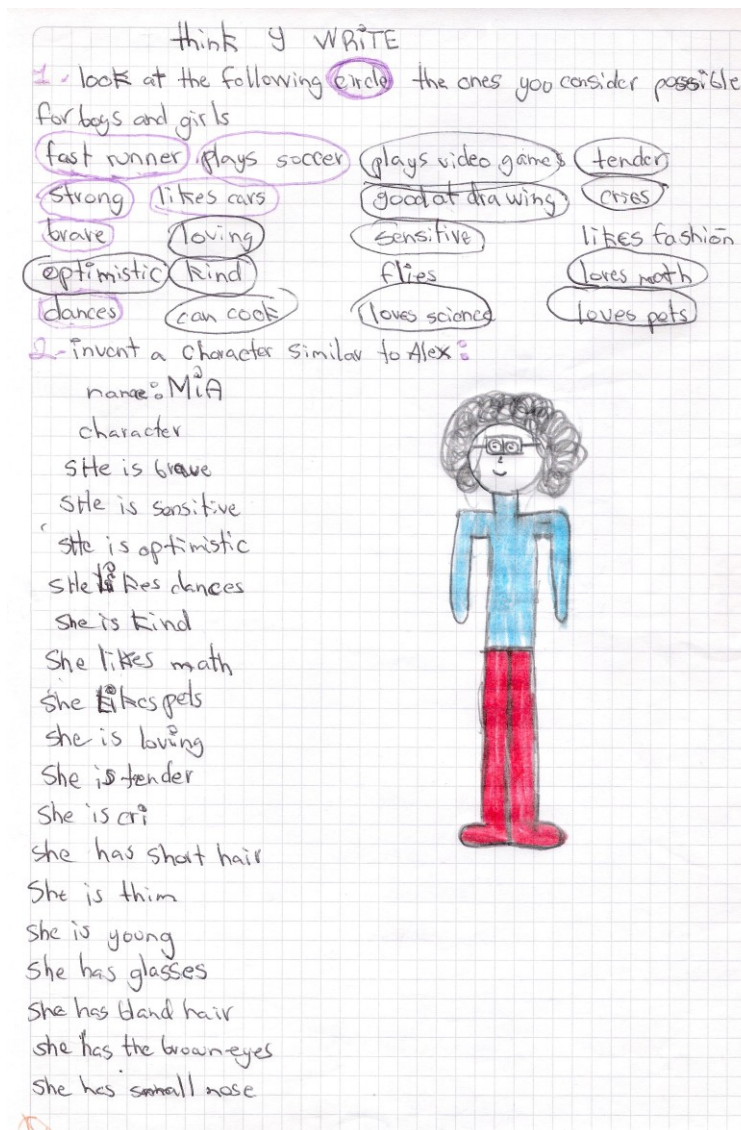 think y WRiTE
1. look at the following circle the ones you consider possible
for boys and girls
fast runner plays soccer plays video games tender
strong likes cars good at drawing cries
brave loving sensitive likes fashion
optimistic kind flies loves math
dances can cook loves science loves pets
2-invent a character similar to Alex:
name: MiA
character
sHe is brave
sHe is sensitive
sHe is optimistic
sHe likes dances
she is kind
She likes math
she likes pets
she is loving
She is tender
She is cri
she has short hair
She is thim
she is young
she has glasses
she has bland hair
she has the brown-eyes
she has small nose